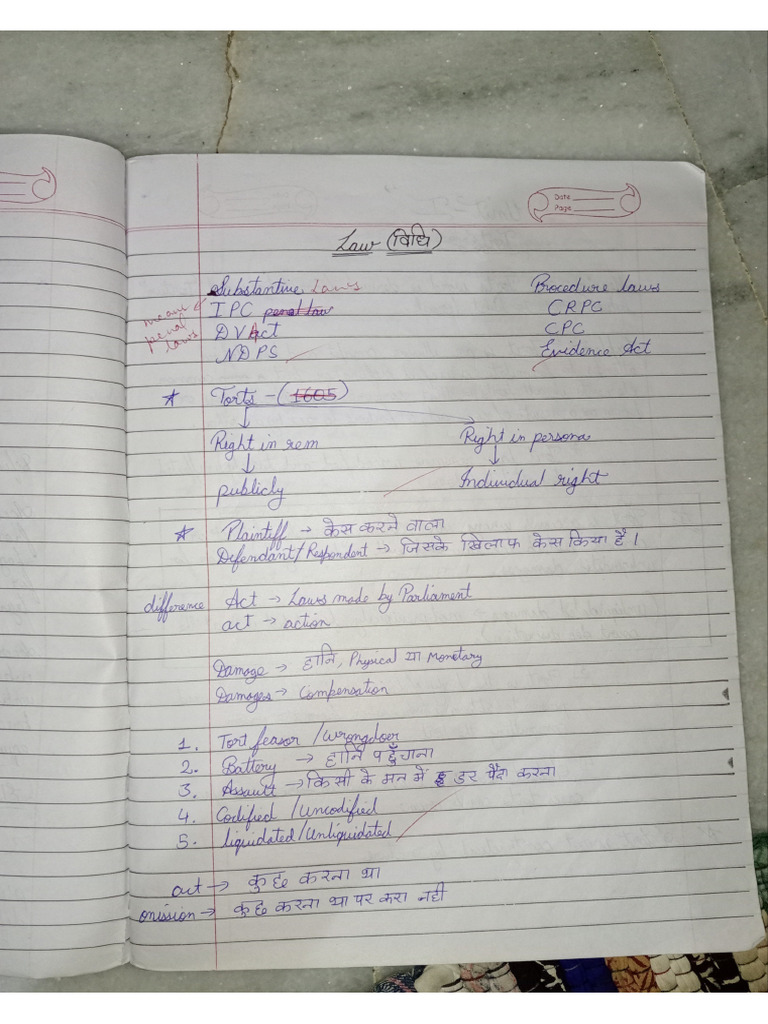 Date
Page
Law (विधि)
Substantive Laws
Procedure laws
means penal laws
IPC penal law
CRPC
DV Act
CPC
NDPS
Evidence Act
* Torts - (1605)
Right in rem
Right in persona
publicly
Individual right
* Plaintiff → केस करने वाला
Defendant/Respondent → जिसके खिलाफ केस किया है।
difference Act → Laws made by Parliament
act → action
Damage → हानि, Physical या Monetary
Damages → Compensation
1. Tort feasor / Wrongdoer
2. Battery → हानि पहुँचाना
3. Assault → किसी के मन में डर पैदा करना
4. Codified / Uncodified
5. liquidated / Unliquidated
act → कुछ करना था
omission → कुछ करना था पर करा नही